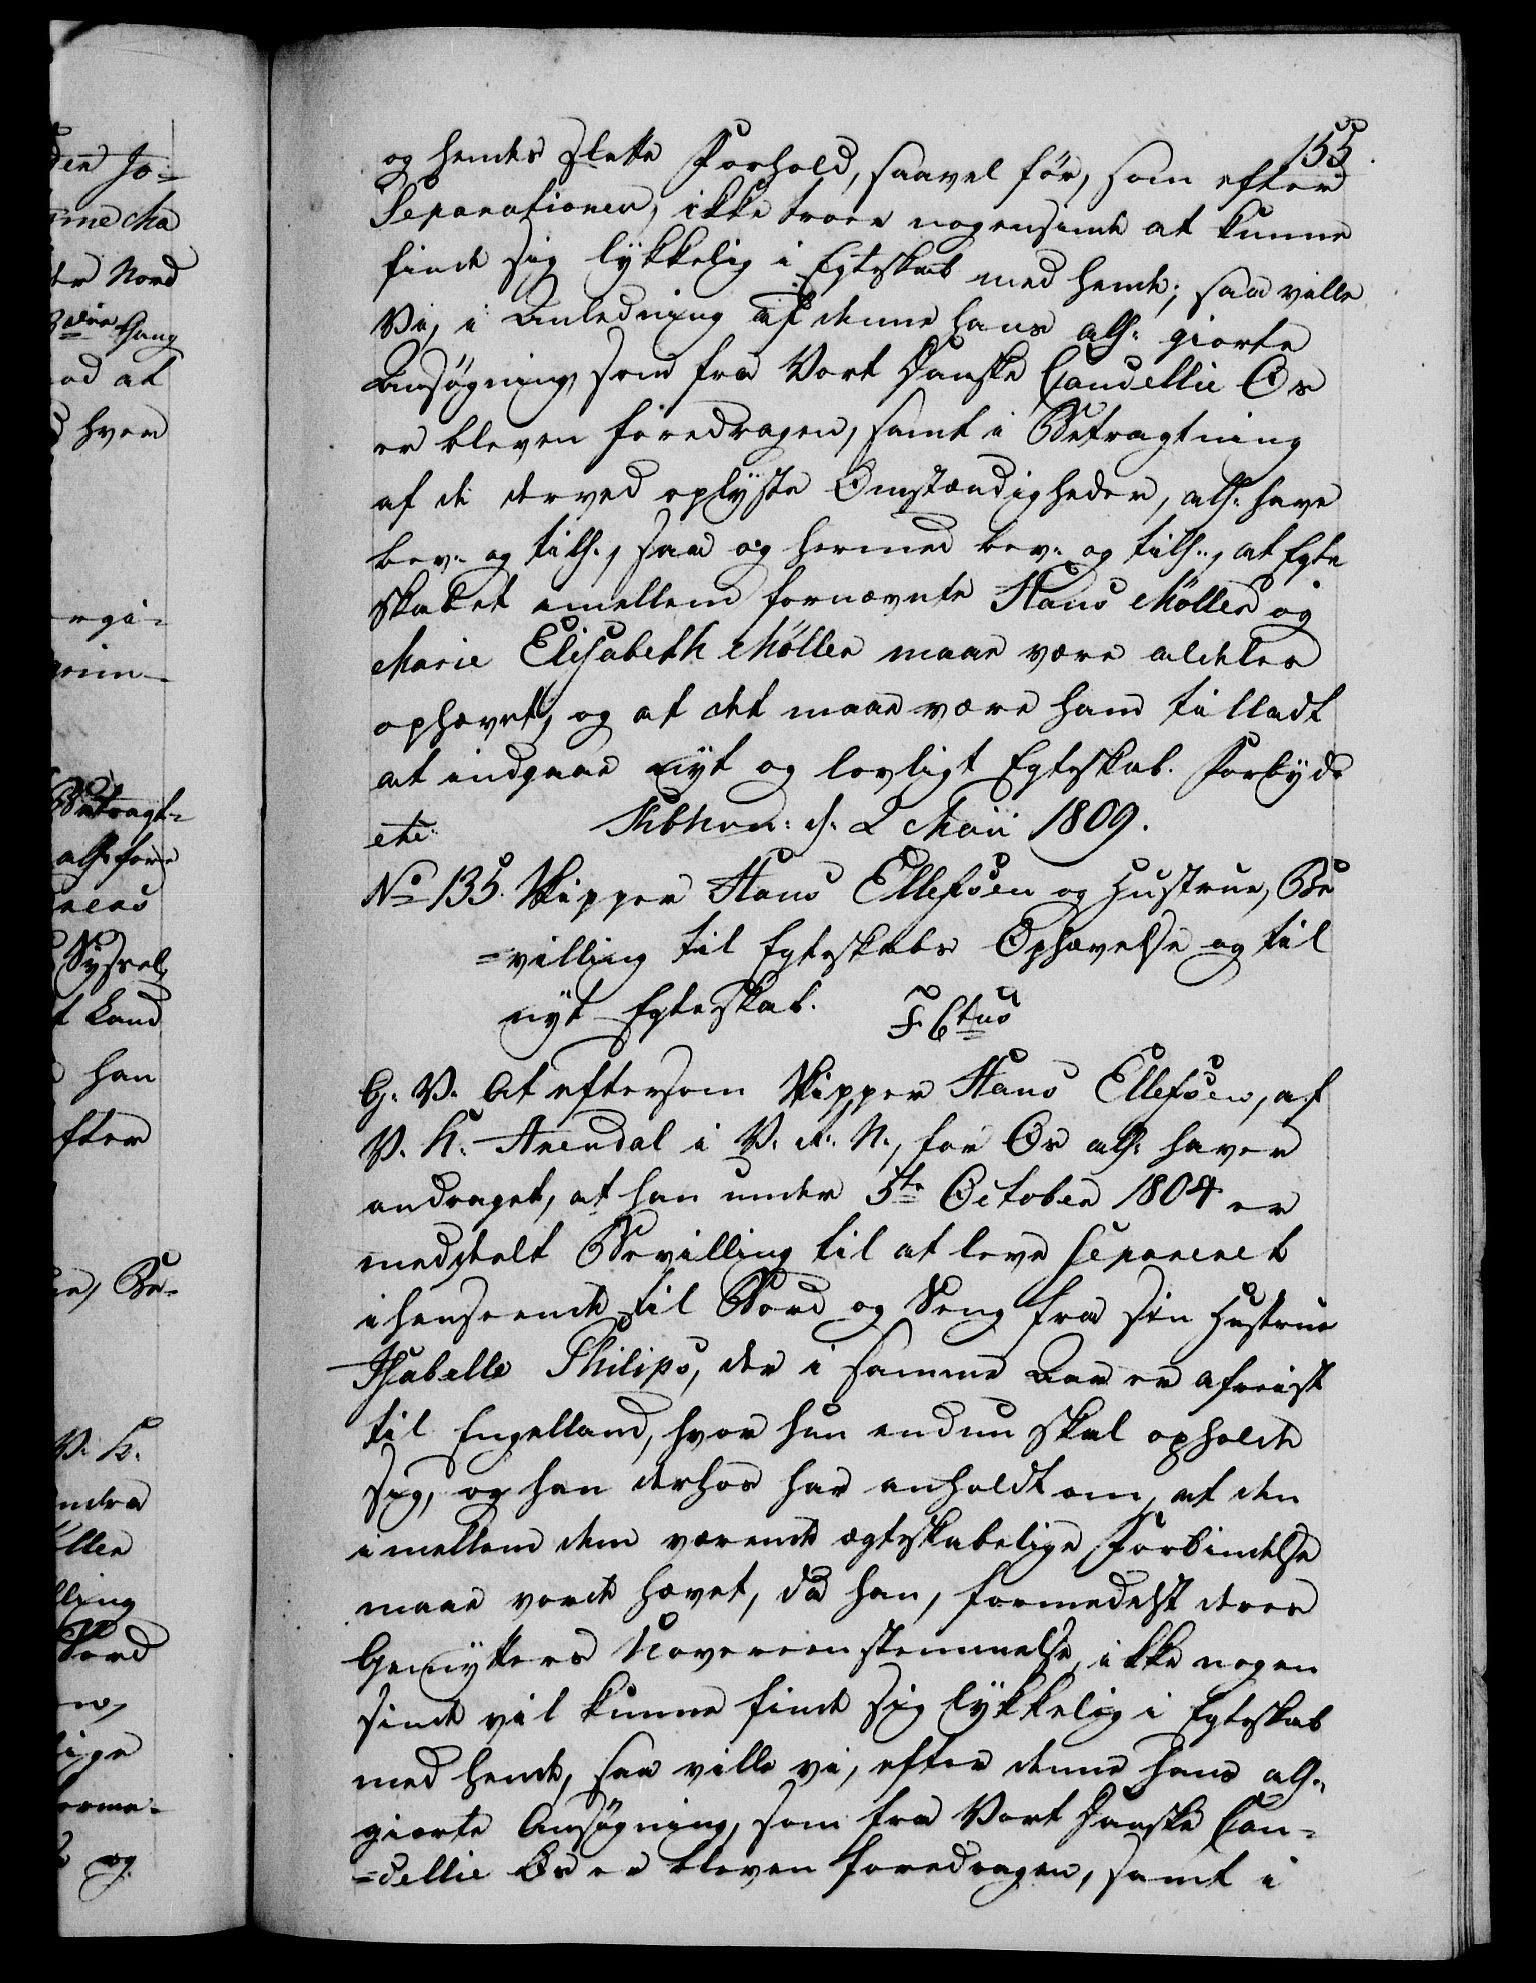 155.
og hendes slette Forhold, saavel før, som efter
Separationen, ikke troer nogensinde at kunne
finde sig lykkelig i Egteskab med hende; saa ville
Vi, i Anledning af denne hans alh: giorte
Ansøgning, som fra Vort Danske Cancellie Os
er bleven foredragen, samt i Betragtning
af de derved oplyste Omstændigheder, alh: have
bev: og tilh:, saa og hermed bev: og tilh:, at Egte
skabet imellem fornævnte Hans Møller og
Marie Elisabeth Møller maae være aldeles
ophævet, og at det maae være ham tilladt
at indgaae nyt og lovligt Egteskab. Forbyde
etc: Kbhvn: d: 2 Maii 1809.
No 135. Skipper Hans Ellefsen og Hustrue, Be
=villing til Egteskabs Ophævelse og til
nyt Egteskab. F 6tus
G. V. At eftersom Skipper Hans Ellefsen, af
V. K. Arendal i V. R. N., for Os alh: haver
andraget, at han under 5te October 1804 er
meddeelt Bevilling til at leve separeret
i henseende til Bord og Seng fra sin Hustrue
Isabelle Philips, der i samme Aar er afreist
til Engelland, hvor hun endnu skal opholde
sig, og han derhos har anholdt om, at den
imellem dem værende ægteskabelige Forbindelse
maae vorde hævet, da han, formedelst deres
Gemytters Uovereenstemmelse, ikke nogen
sinde vil kunne finde sig lykkelig i Egteskab
med hende, saa ville vi, efter denne hans alh:
giorte Ansøgning, som fra Vort Danske Can=
=cellie Os er bleven foredragen, samt i